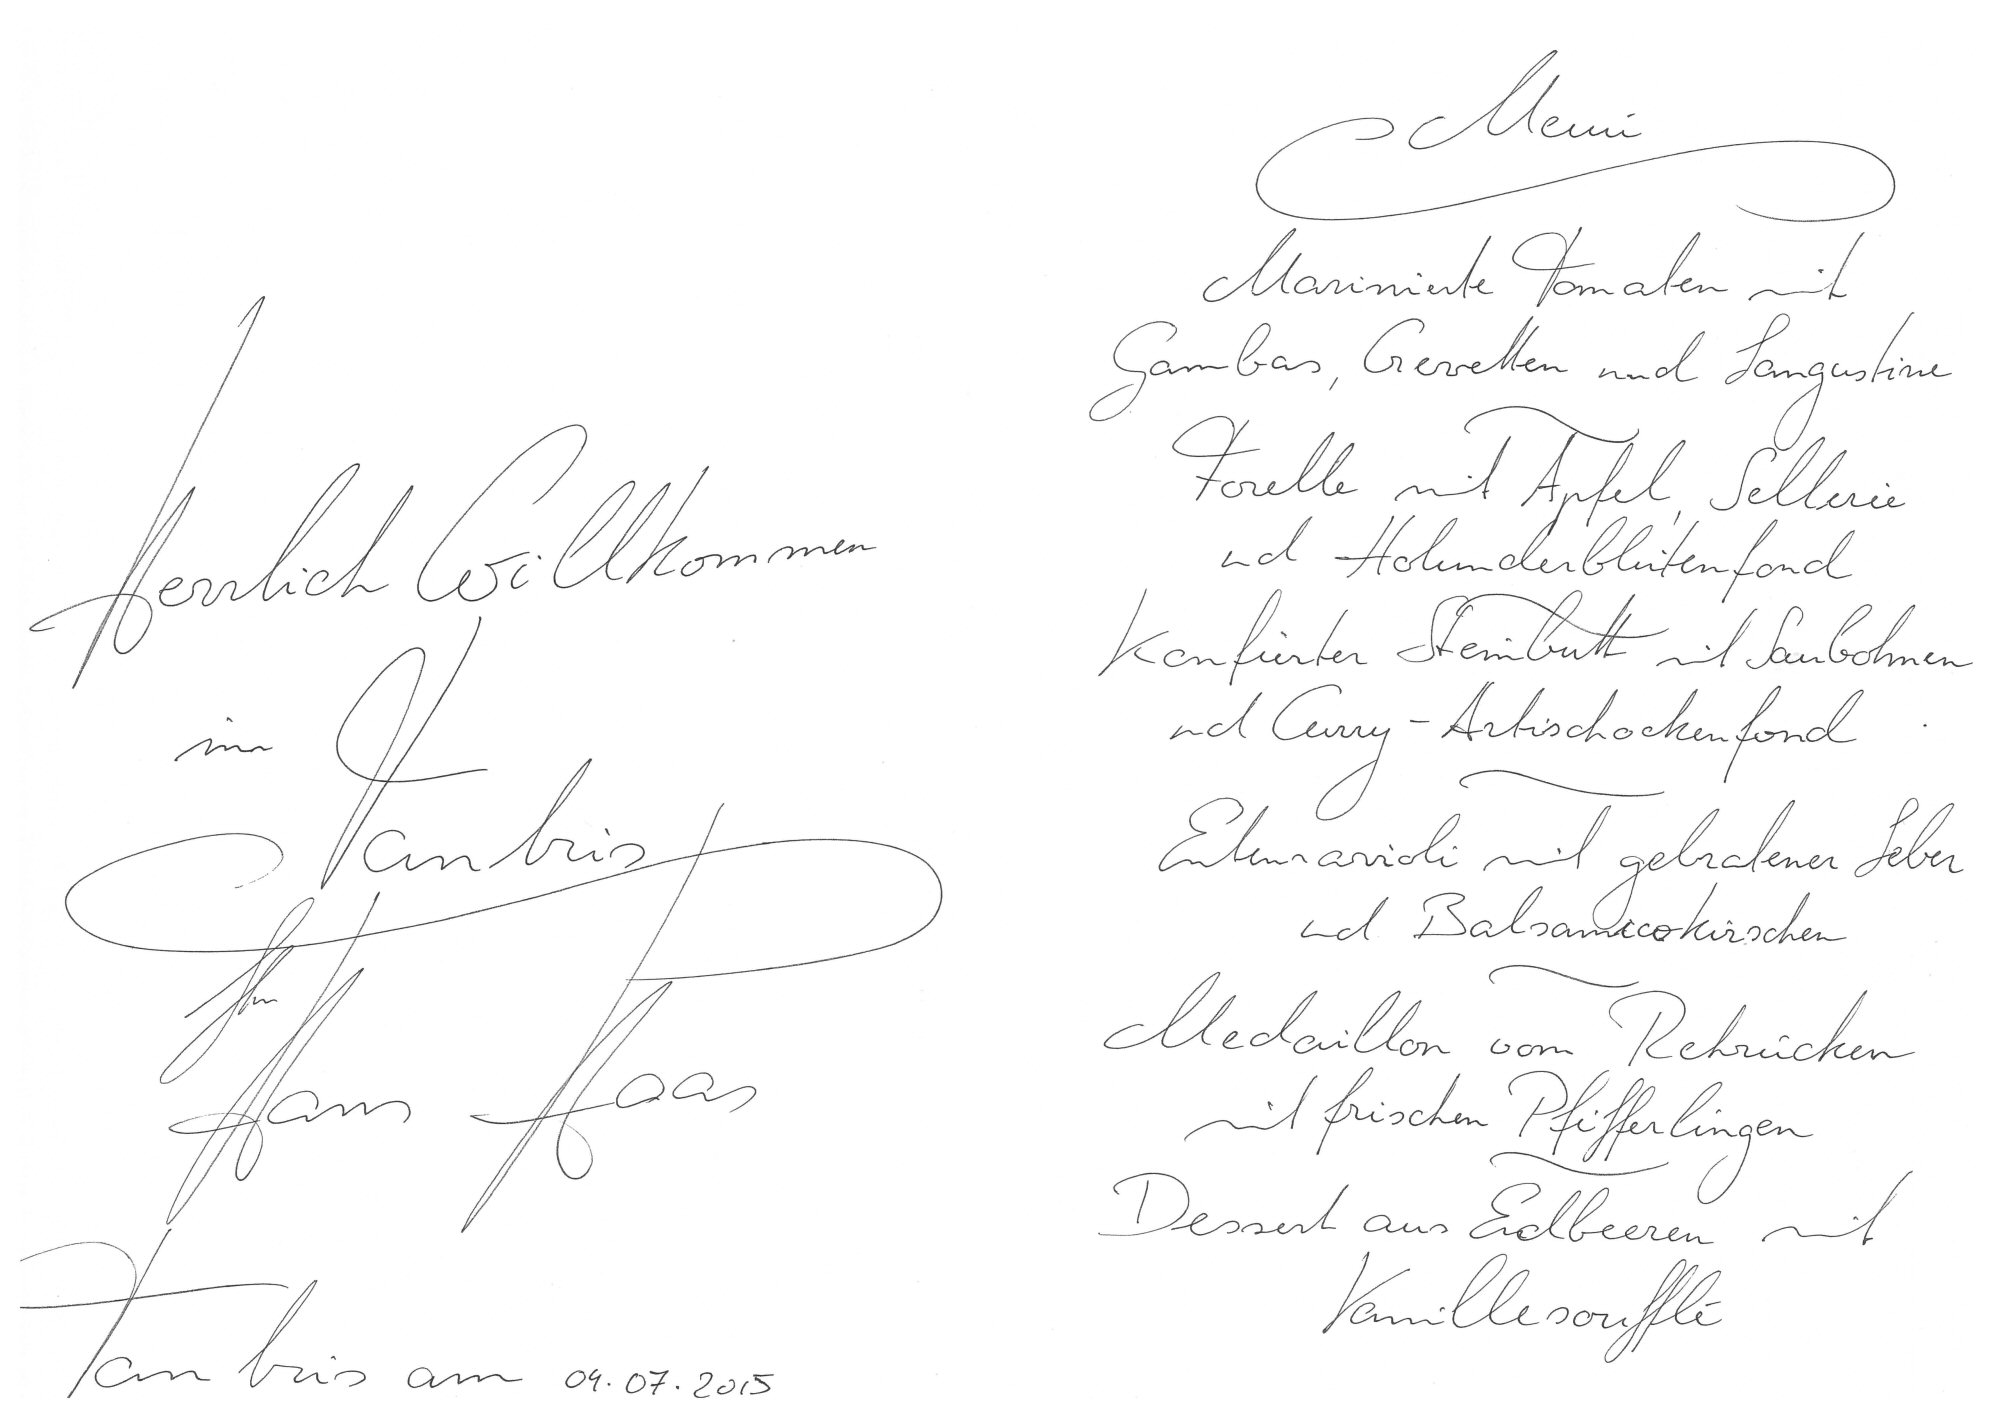 Herrlich Willkommen
im
Tantris
Ihr
Hans Haas
Tantris am 09.07.2015
Menü
Marinierte Tomaten mit
Gambas, Crevetten und Langustine
Forelle mit Apfel, Sellerie
und Holunderblütenfond
Konfierter Steinbutt mit Saubohnen
und Curry-Artischockenfond
Entenravioli mit gebratener Leber
und Balsamicokirschen
Medaillon vom Rehrücken
mit frischen Pfifferlingen
Dessert aus Erdbeeren mit
Vanillesoufflé